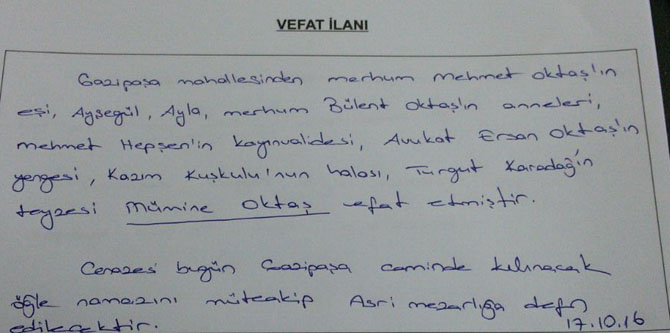 VEFAT İLANI
Gazipaşa mahallesinden merhum mehmet oktaş'ın
eşi, Ayşegül, Ayla, merhum Bülent Oktaş'ın anneleri,
mehmet Hepşen'in kayınvalidesi, Avukat Ersan Oktaş'ın
yengesi, Kazım Kuşkulu'nun halası, Turgut Karadağ'ın
teyzesi Mümine Oktaş vefat etmiştir.
Cenazesi bugün Gazipaşa caminde kılınacak
öğle namazını müteakip Asri mezarlığa defn
edilecektir. 17.10.16